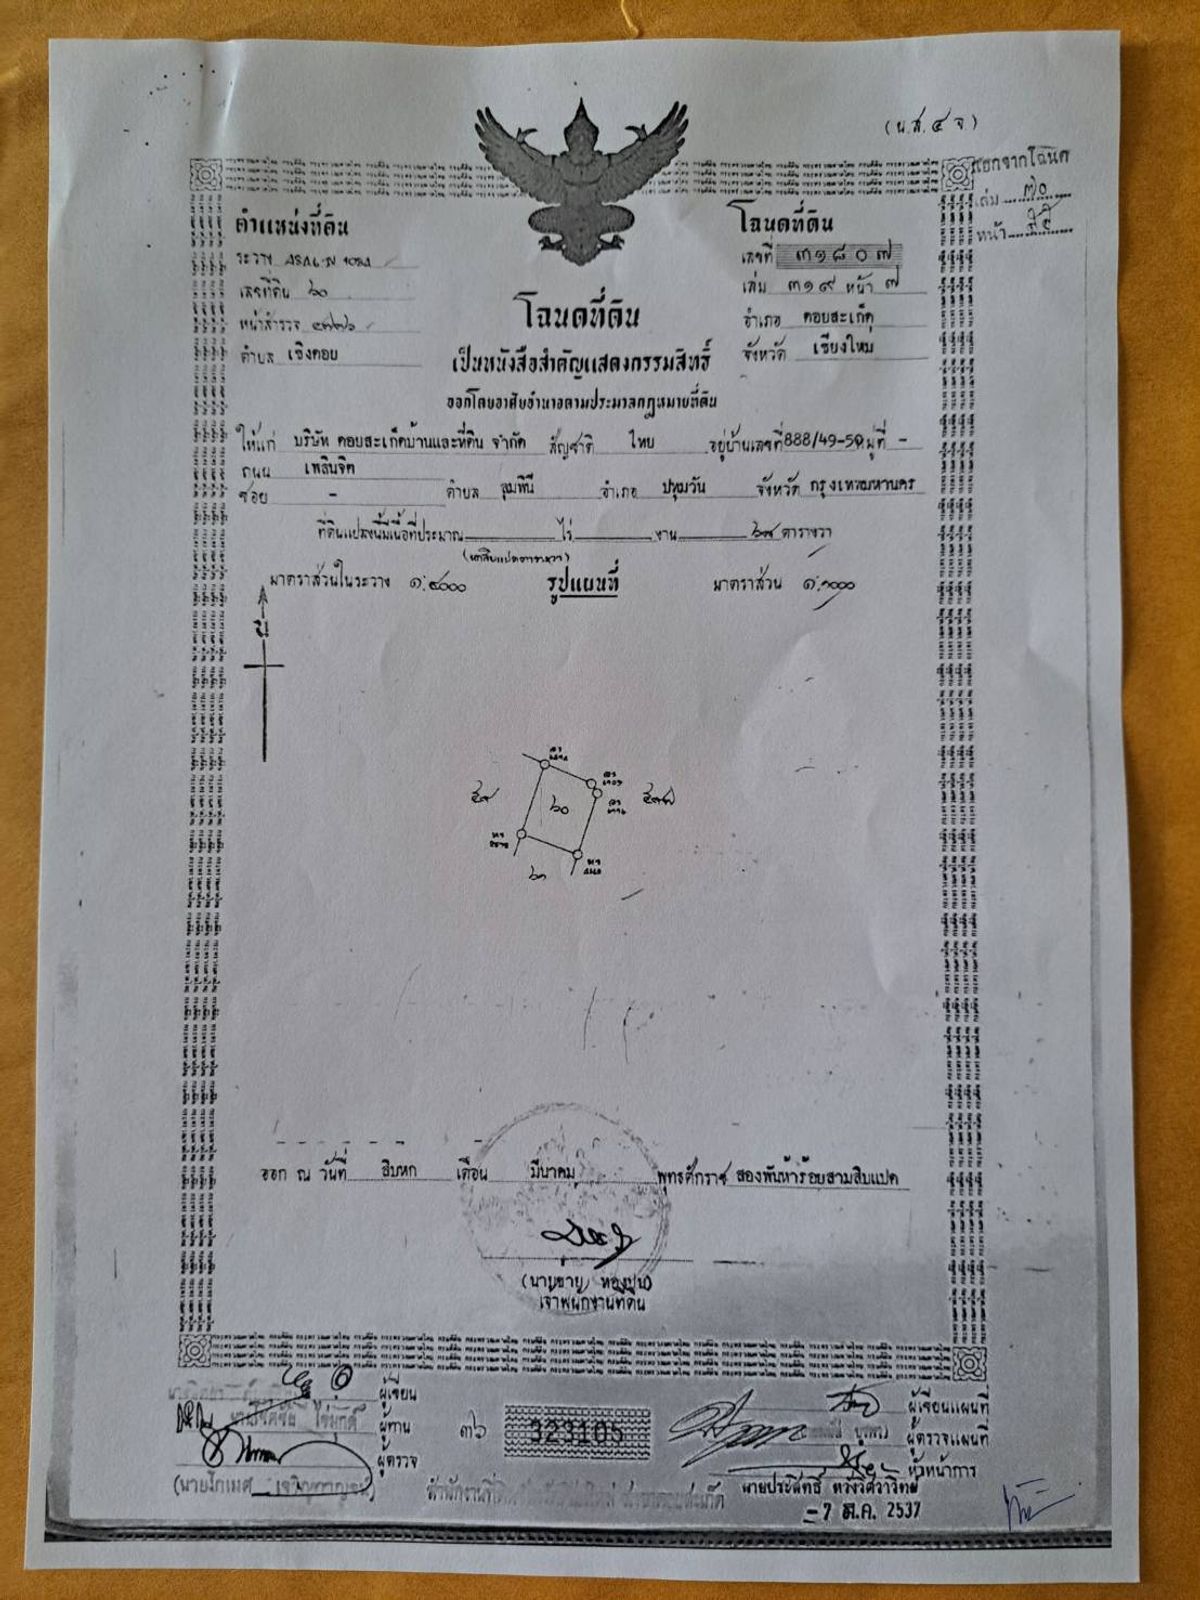 (น.ส.๔ จ)
ออกจากโฉนด
เล่ม ๓๐
หน้า
ตำแหน่งที่ดิน
ระวาง
เลขที่ดิน ๖๐
หน้าสำรวจ
ตำบล เชิงดอย
โฉนดที่ดิน
เลขที่ ๓๑๘๐๗
เล่ม ๓๑๙ หน้า ๗
อำเภอ ดอยสะเก็ด
จังหวัด เชียงใหม่
โฉนดที่ดิน
เป็นหนังสือสำคัญแสดงกรรมสิทธิ์
ออกโดยอาศัยอำนาจตามประมวลกฎหมายที่ดิน
ให้แก่ บริษัท ดอยสะเก็ดบ้านและที่ดิน จำกัด สัญชาติ ไทย อยู่บ้านเลขที่ 888/49-50 หมู่ที่ -
ถนน เพลินจิต
ซอย - ตำบล ลุมพินี อำเภอ ปทุมวัน จังหวัด กรุงเทพมหานคร
ที่ดินแปลงนี้มีเนื้อที่ประมาณ ไร่ งาน ๖๘ ตารางวา
(หกสิบแปดตารางวา)
มาตราส่วนในระวาง ๑:๔๐๐๐ รูปแผนที่ มาตราส่วน ๑:๑๐๐๐
น
๕๙
๖๐
๖๑
ออก ณ วันที่ สิบหก เดือน มีนาคม พุทธศักราช สองพันห้าร้อยสามสิบแปด
(นายอายุ ทองปุน)
เจ้าพนักงานที่ดิน
ผู้เขียน
ผู้ทาน
ผู้ตรวจ
(นายโกเมศ
๓๖
323105
ผู้เขียนแผนที่
ผู้ตรวจแผนที่
หัวหน้าการ
นายประสิทธิ์ หวังวิศวาวิทย์
-7 ส.ค. 2537